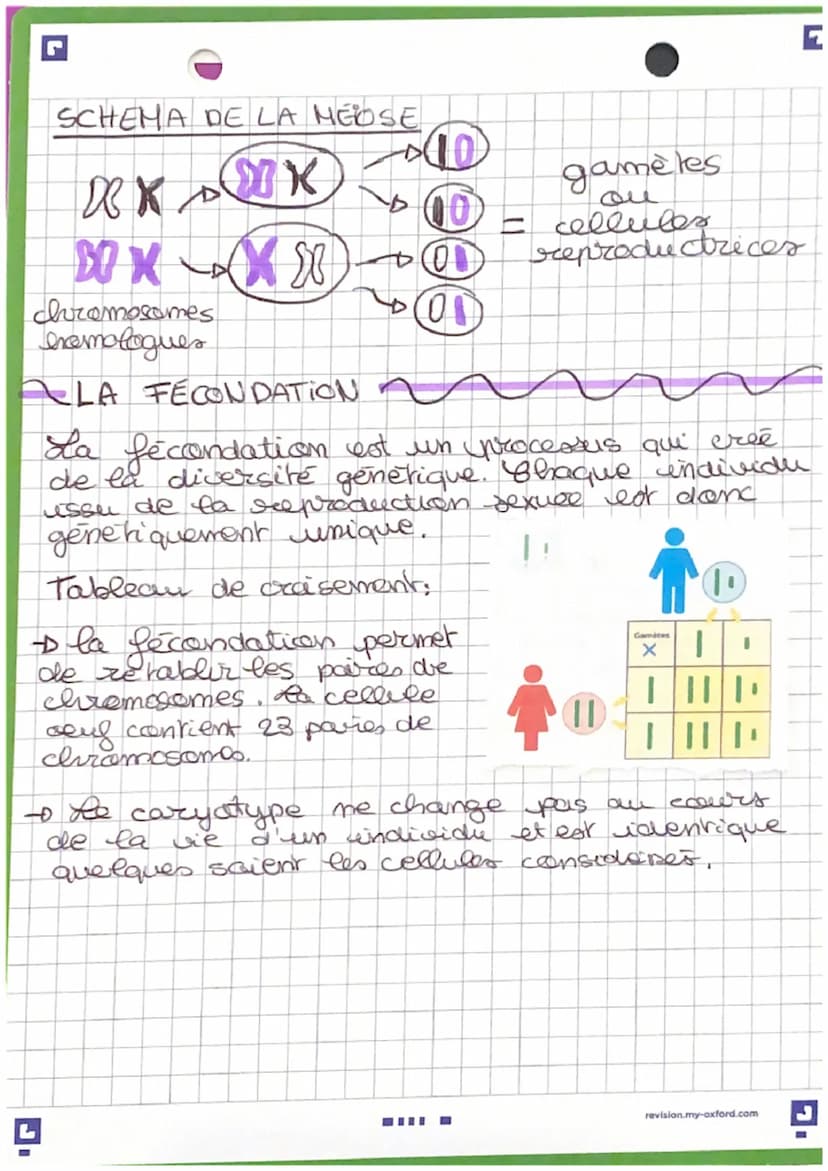 SCHEMA DE LA MÉIOSE
gamètes
ou
= cellules
reproductrices
chromosomes
homologues
LA FÉCONDATION
La fécondation est un processus qui créé
de la diversité génétique. Chaque individu
issu de la reproduction sexuée est donc
génétiquement unique.
Tableau de croisement:
→ la fécondation permet
de rétablir les paires de
chromosomes. La cellule
oeuf contient 23 paires de
chromosomes.
Gamètes
X
→ Le caryotype ne change pas au cours
de la vie d'un individu et est identique
quelques soient les cellules considérées.
revision.my-oxford.com